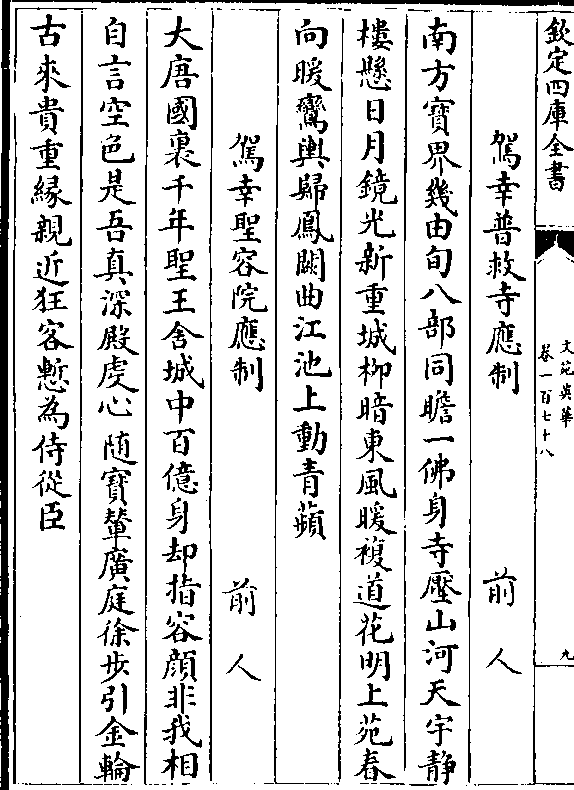 欽定四庫全書
文苑英華
卷一百七十八
九
駕幸普救寺應制 前人
南方寶界幾由旬八部同瞻一佛身寺壓山河天宇靜
樓懸日月鏡光新重城柳暗東風暖複道花明上苑春
向暖鸞輿歸鳳闕曲江池上動青蘋
駕幸聖容院應制 前人
大唐國裏千年聖王舍城中百億身却指容顔非我相
自言空色是吾真深殿虔心隨寶輦廣庭徐步引金輪
古來貴重縁親近狂客慙為侍從臣